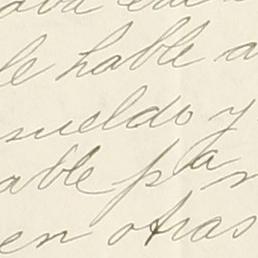 le hable a
sueldo y
able para
en otras